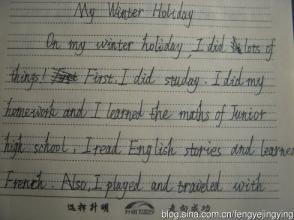 My Winter Holiday
On my winter holiday, I did lots of
things! First, I did studay. I did my
homework and I learned the maths of Junior
high school. I read English stories and learned
French. Also, I played and traveled with
走向成功
blog.sina.com.cn/fengyejingying